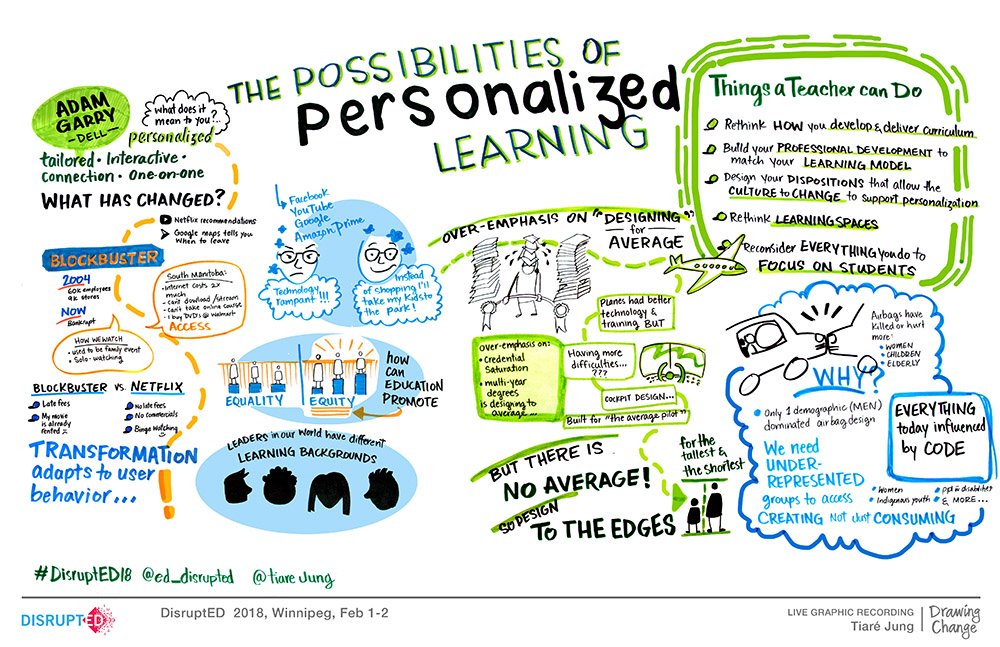 THE POSSIBILITIES OF
personalized
LEARNING
ADAM
GARRY
-DELL-
what does it
mean to you?..
personalized
tailored · Interactive ·
connection · One-on-one
WHAT HAS CHANGED?
Netflix recommendations
Google maps tells you
when to leave
BLOCKBUSTER
2004
60K employees
9K stores
NOW
Bankrupt
South Manitoba:
· Internet costs 2x
much
· Can't download/stream
· Can't take online course
· I buy DVD's @ Walmart
ACCESS
HOW WE WATCH
· used to be family event
· Solo-watching
BLOCKBUSTER VS. NETFLIX
Late fees
My movie
is already
rented
No late fees
No commercials
Binge Watching
TRANSFORMATION
adapts to user
behavior...
Facebook
YouTube
Google
Amazon prime
Technology
rampant!!!
Instead
of shopping I'll
take my kids to
the park!
EQUALITY
EQUITY
how
can
EDUCATION
PROMOTE
LEADERS in our World have different
LEARNING BACKGROUNDS
OVER-EMPHASIS ON "DESIGNING"
for
AVERAGE
Planes had better
technology &
training BUT
over-emphasis on:
· Credential
Saturation
· multi-year
degrees
is designing to
average...
Having more
difficulties...
???
COCKPIT DESIGN...
Built for "the average pilot"
BUT THERE IS
NO AVERAGE!
SO DESIGN
TO THE EDGES
for the
tallest &
the shortest
Things a Teacher can Do
Rethink HOW you develop & deliver curriculum
Build your PROFESSIONAL DEVELOPMENT to
match your LEARNING MODEL
Design your DISPOSITIONS that allow the
CULTURE to CHANGE to support personalization
Rethink LEARNING SPACES
Reconsider EVERYTHING you do to
FOCUS ON STUDENTS
Airbags have
killed or hurt
more:
· WOMEN
· CHILDREN
· ELDERLY
WHY?
· Only 1 demographic (MEN)
dominated airbag design
We need
UNDER-
REPRESENTED
groups to access
CREATING Not Just CONSUMING
· Women
· Indigenous youth
· ppl w disabilities
& MORE...
EVERYTHING
today influenced
by CODE
#DisruptED18 @ed_disrupted @tiare Jung
DISRUPTED
DisruptED 2018, Winnipeg, Feb 1-2
LIVE GRAPHIC RECORDING
Tiaré Jung
Drawing
Change